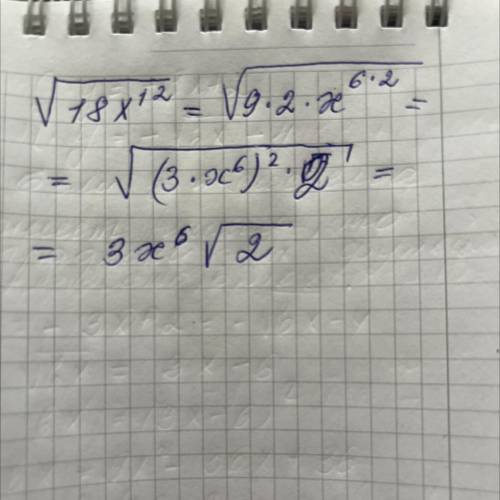 √18x¹² = √9·2·x⁶·² =
= √(3·x⁶)²·2 =
= 3x⁶√2